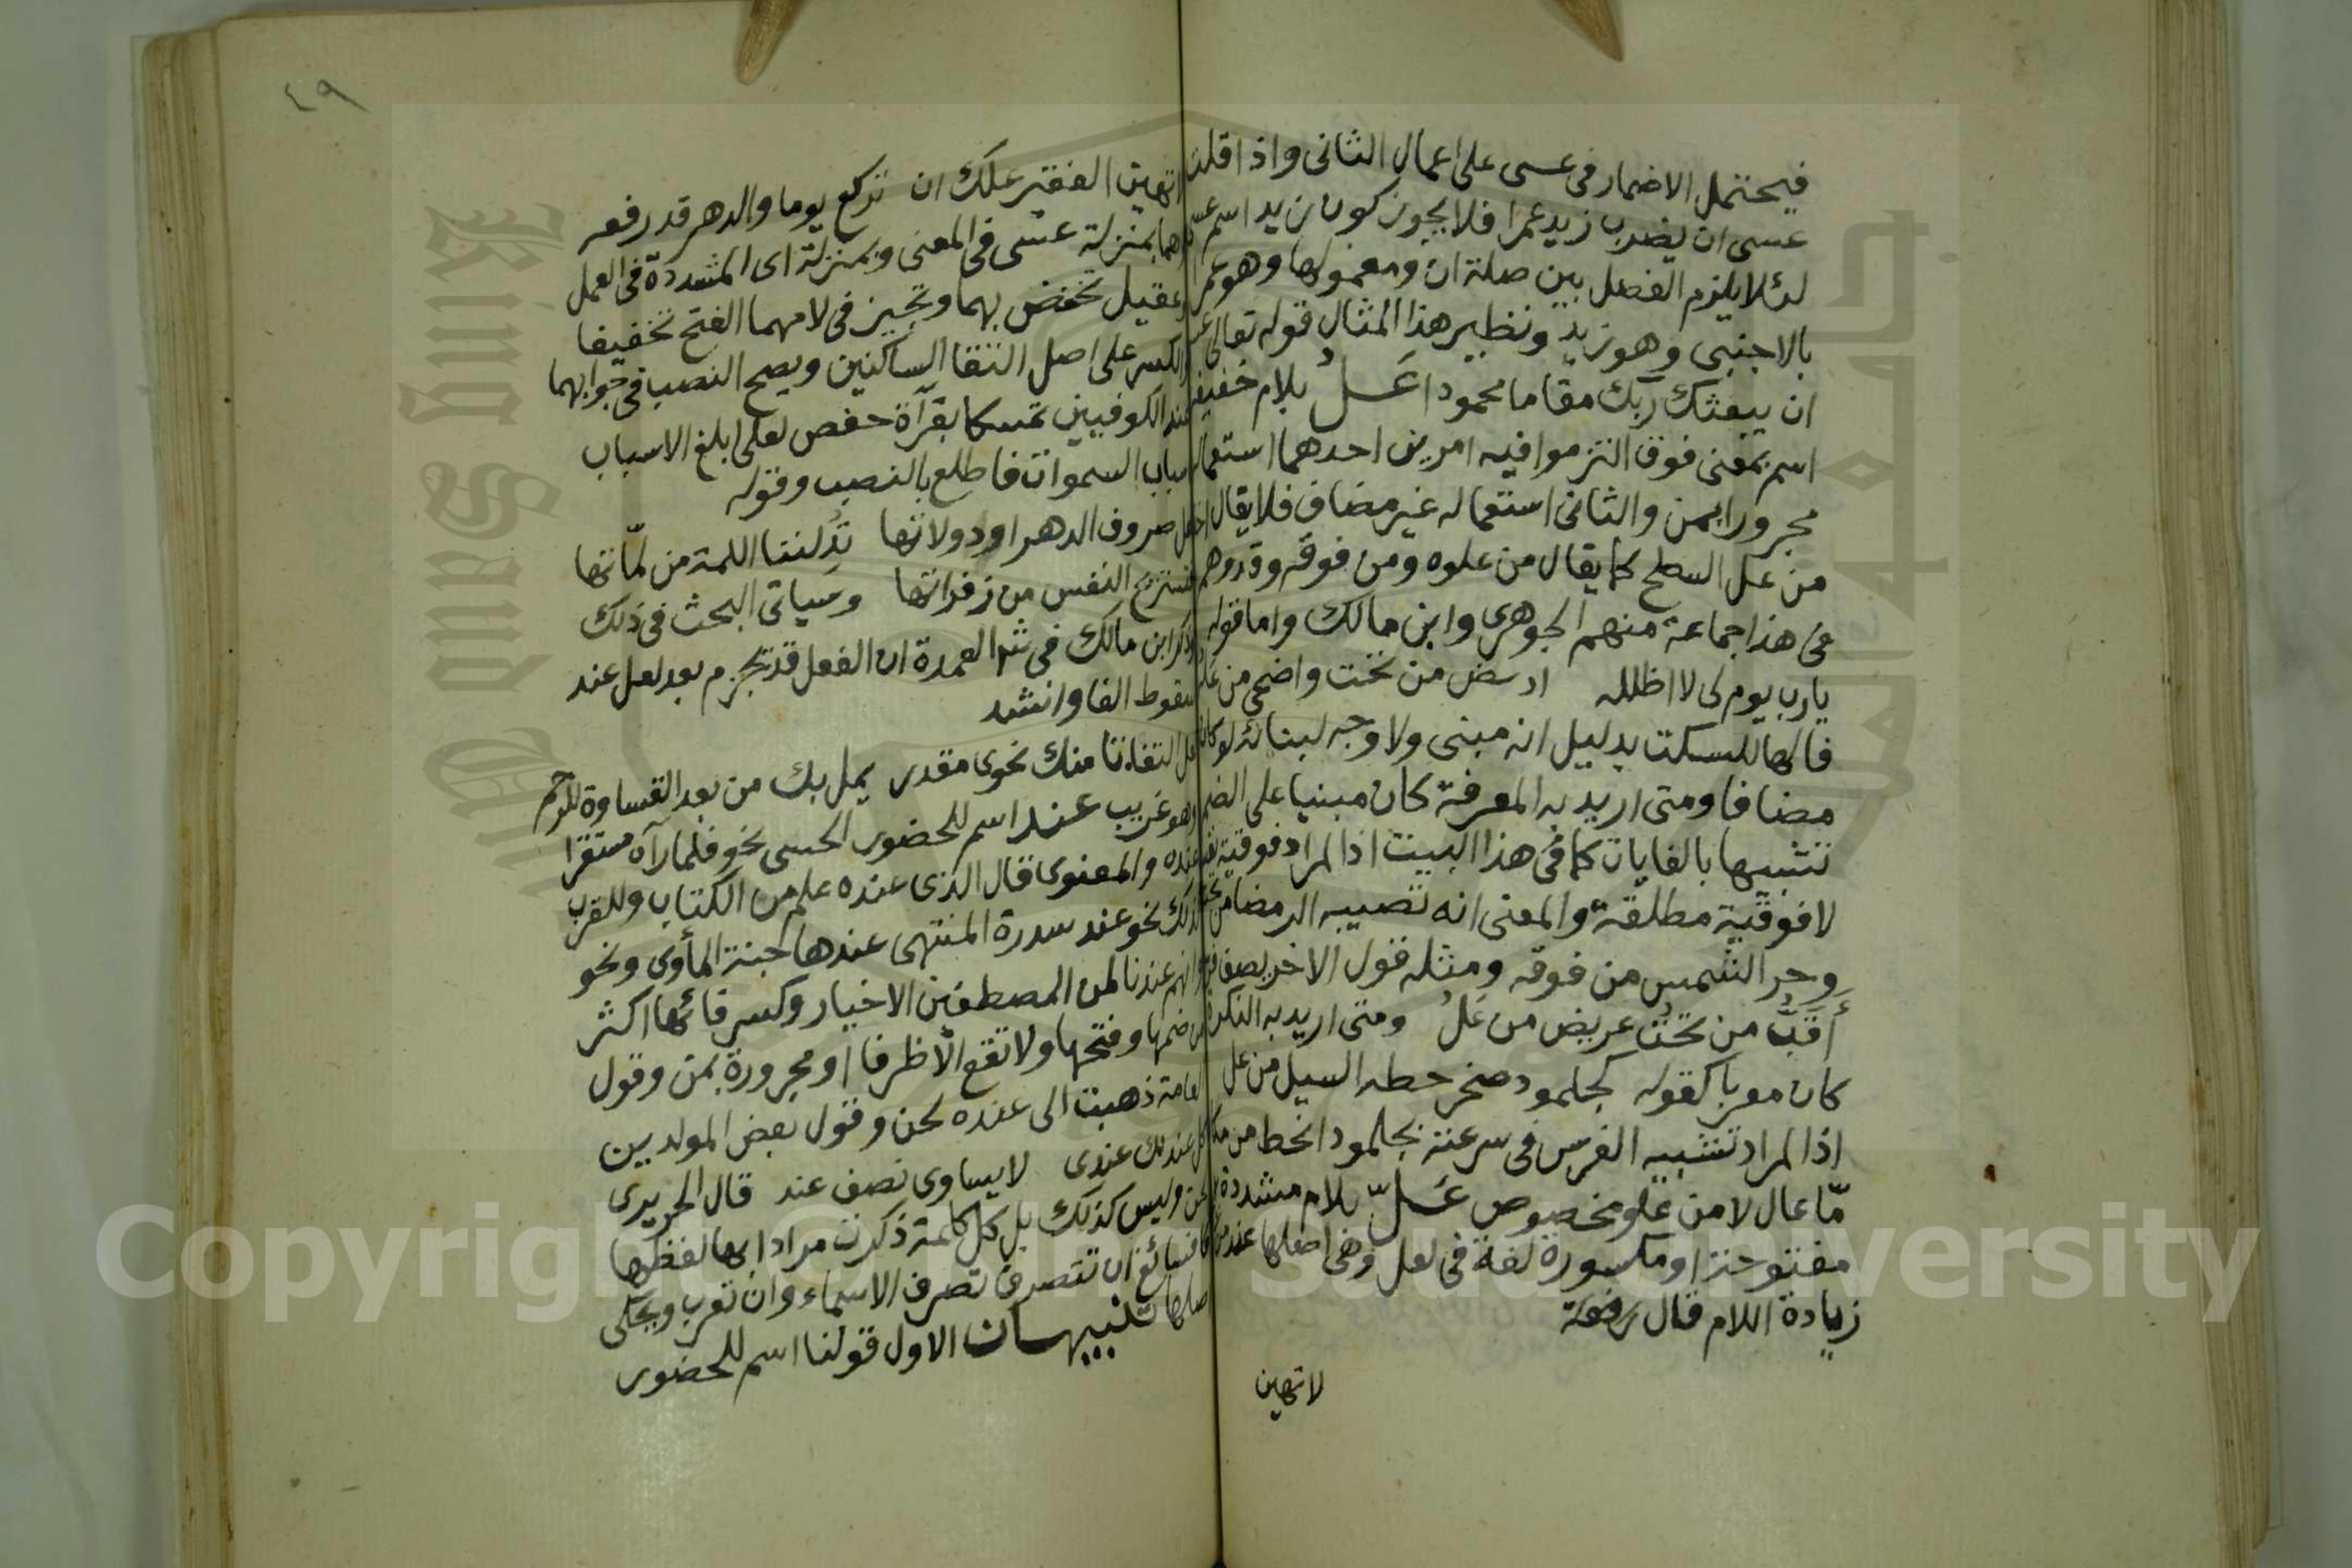 فيحتمل الاضمار فى عسى على اعمال الثانى واذا قلت
عسى ان يضرب زيد عمرا فلا يجوز كون زيد اسم عسى
لئلا يلزم الفصل بين صلة ان ومعمولها وهو عمرا
بالاجنبى وهو زيد ونظير هذا المثال قوله تعالى عسى
ان يبعثك ربك مقاما محمودا عَـلُ بلام خفيفة
اسم بمعنى فوق التزموا فيه امرين احدهما استعماله
مجرورا بمن والثانى استعماله غير مضاف فلا يقال اخذته
من عل السطح كما يقال من علوه ومن فوقه وقد وهم
فى هذا جماعة منهم الجوهرى وابن مالك واما قوله
يارب يوم لى لا اظلله ارمض من تحت واضحى من عله
فالها للسكت بدليل انه مبنى ولا وجه لبنائه لو كان
مضافا ومتى اريد به المعرفة كان مبنيا على الضم
تشبيها بالغايات كما فى هذا البيت اذ المراد فوقية نفسه
لا فوقية مطلقة والمعنى انه تصيبه الرمضا من تحته
وحر الشمس من فوقه ومثله قول الاخر يصف فرسا
أَقَبُّ من تحتُ عريض من عَلُ ومتى اريد به النكرة
كان معربا كقوله كجلمود صخر حطه السيل من عل
اذ المراد تشبيه الفرس فى سرعته بجلمود انحط من مكان
مّا عال لا من علو مخصوص عَـلّ بلام مشددة
مفتوحة او مكسورة لغة فى لعل وهى اصلها عند من زعم
زيادة اللام قال رفعة
لا تهين
٤٩
لا تهين الفقير علك ان تركع يوما والدهر قد رفعه
وهما بمنزلة عسى فى المعنى وبمنزلة ان المشددة فى العمل
وعقيل تخفض بهما وتجيز فى لامهما الفتح تخفيفا
والكسر على اصل التقا الساكنين ويصح النصب فى جوابهما
عند الكوفيين تمسكا بقرآة حفص لعلى ابلغ الاسباب
اسباب السموات فاطلع بالنصب وقوله
عل صروف الدهر او دولاتها تدلننا اللمة من لمّاتها
فتستريح النفس من زفراتها وسياتى البحث فى ذلك
وذكر ابن مالك فى شر العمدة ان الفعل قد يجزم بعد لعل عند
سقوط الفا وانشد
لعل التفاتا منك نحوى مقدر يمل بك من بعد القساوة للرحم
وهو غريب عند اسم للحضور الحسى نحو فلما رآه مستقرا
عنده والمعنوى قال الذى عنده علم من الكتاب وللقرب
كذلك نحو عند سدرة المنتهى عندها جنة المأوى ونحو
وانهم عندنا لمن المصطفين الاخيار وكسر فائها اكثر
من ضمها وفتحها ولا تقع الا ظرفا او مجرورة بمن وقول
العامة ذهبت الى عنده لحن وقول بعض المولدين
كل عند لك عندى لا يساوى نصف عند قال الحريرى
لحن وليس كذلك بل كل كلمة ذكرت مرادا بها لفظها
فسائغ ان تتصرف تصرف الاسماء وان تعرب ويحكى
اصلها تنبيهـان الاول قولنا اسم للحضور